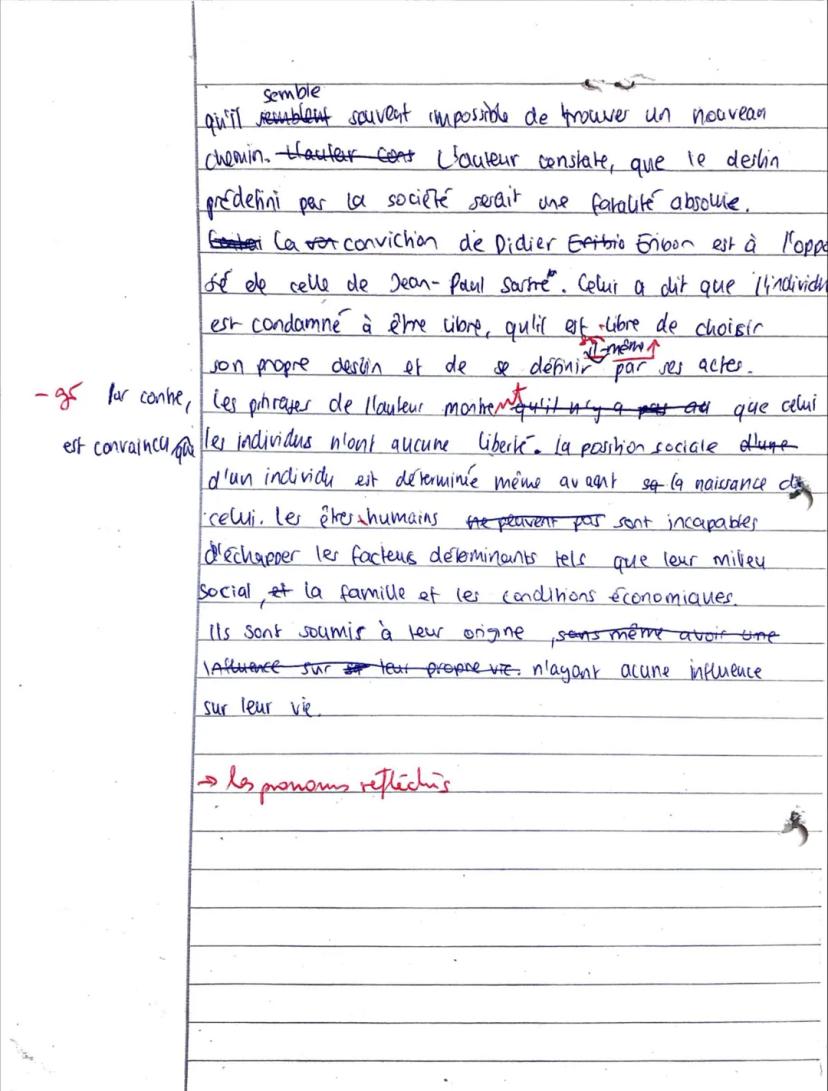 semble
qu'il semblent souvent impossible de trouver un nouveau
chemin. L'auteur cons L'auteur constate, que le destin
prédefini par la société serait une fatalité absolue.
La conviction de Didier Eribio Eribon est à l'oppo
sé de celle de Jean-Paul Sartre. Celui a dit que l'individu
est condamné à être libre, qu'il est libre de choisir
lui-même
son propre destin et de se définir par ses actes.
- gr Par contre, les phrases de l'auteur montrent qu'il n'y a pas au que celui
est convaincu que les individus n'ont aucune liberté. La position sociale d'une
d'un individu est déterminée même avant sa la naissance de
celui. Les êtres humains ne peuvent pas sont incapables
d'échapper les facteurs déterminants tels que leur milieu
social, et la famille et les conditions économiques.
Ils sont soumis à leur origine, sans même avoir une
influence sur sa leur propre vie. n'ayant acune influence
sur leur vie.
→ les pronoms réfléchis